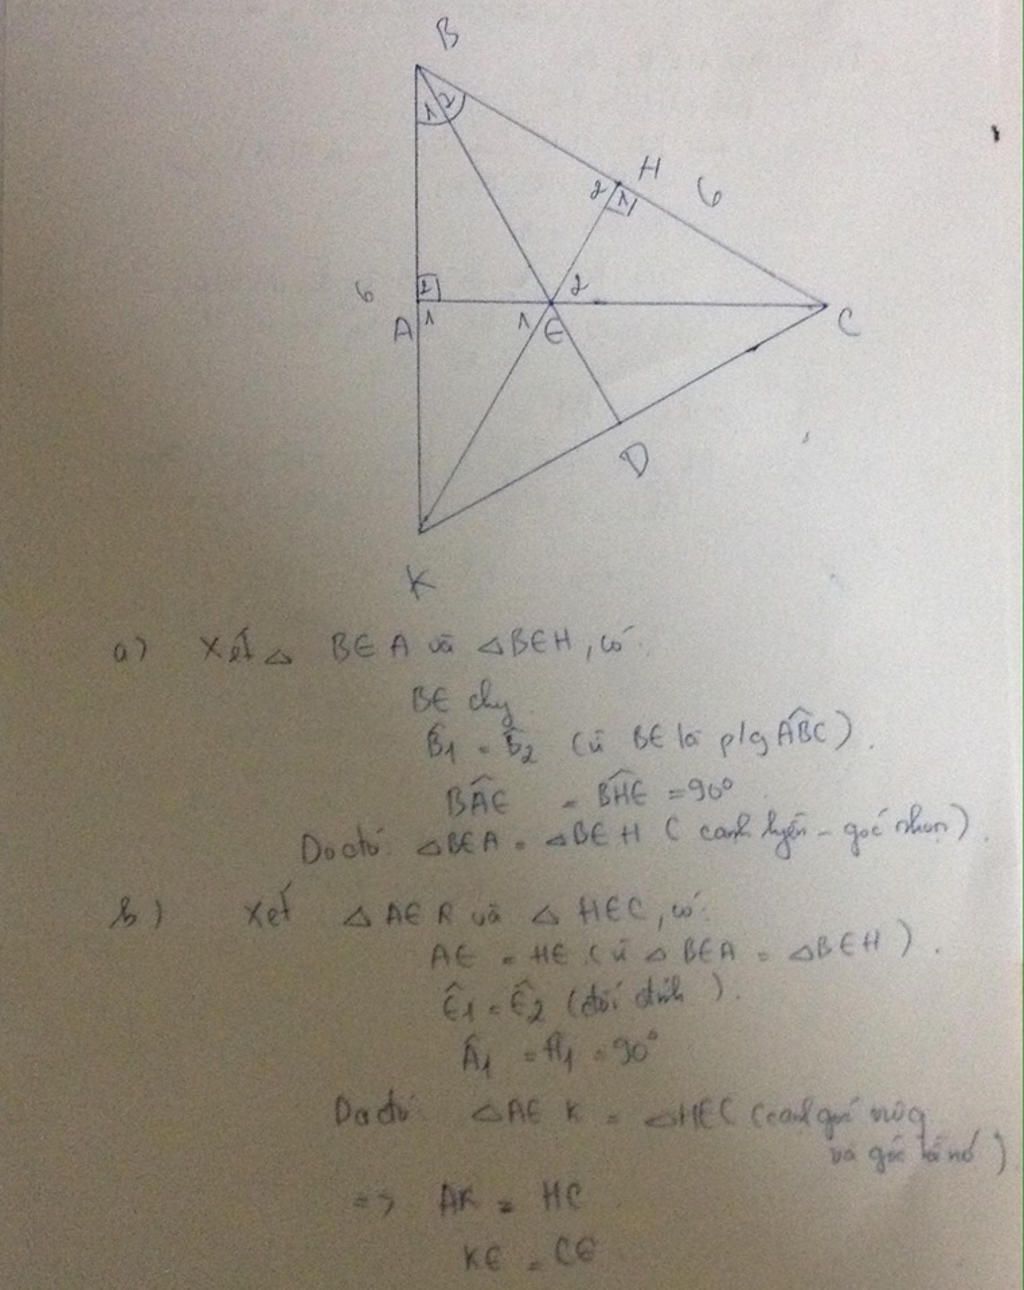 B
1 2
H
2 1
6
6
2
2
A 1
1 E
C
D
K
a) Xét △ BEA và △BEH, có:
BE chg
B̂1 = B̂2 (vì BE là p/g ABC).
BAE = BHE = 90°
Do đó: △BEA = △BEH (cạnh huyền - góc nhọn).
b) Xét △ AEK và △ HEC, có:
AE = HE (vì △ BEA = △BEH).
Ê1 = Ê2 (đối đỉnh).
Â1 = Ĥ1 = 90°
Do đó: △AEK = △HEC (cạnh góc vuông
và góc kề nó)
=> AK = HC
KE = CE